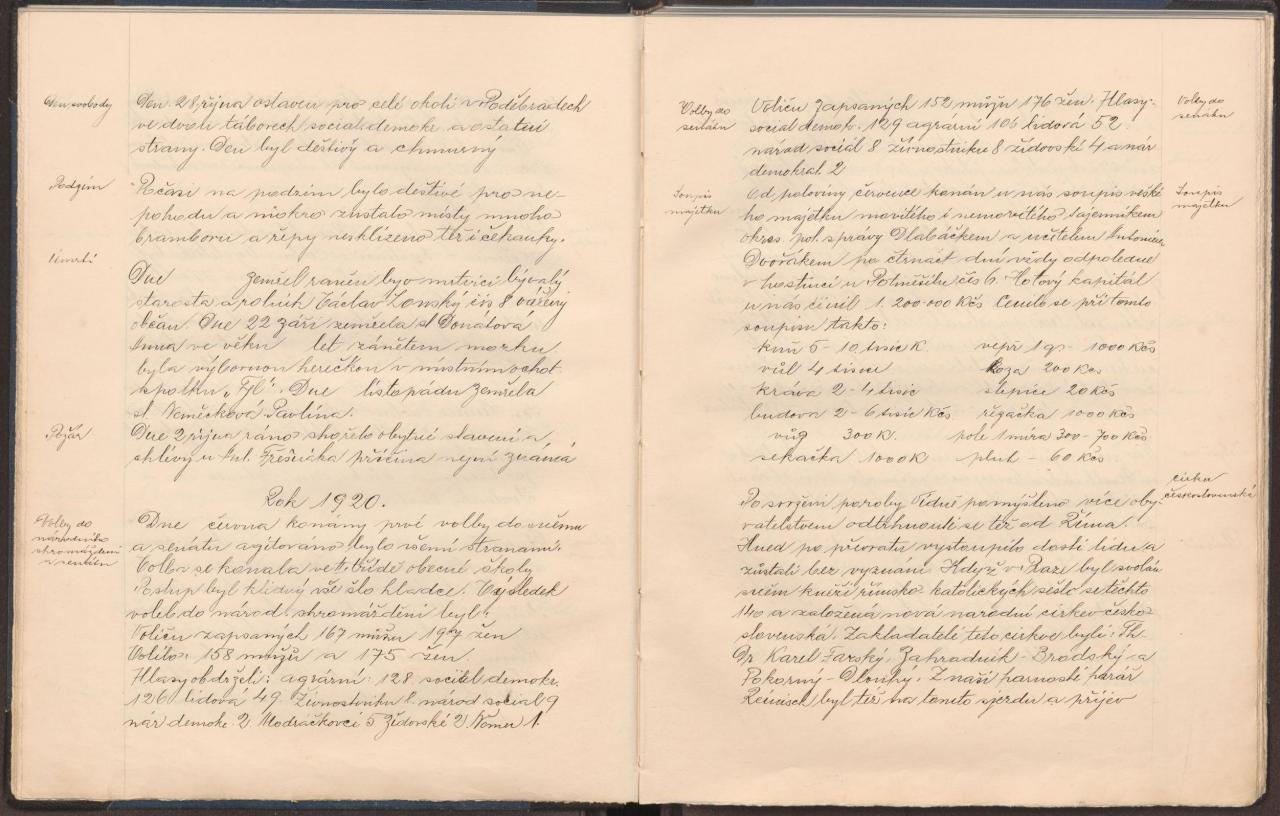 Den svobody
Den 28 října oslaven pro celé okolí v Poděbradech
ve dvou táborech social. demokr. a ostatní
strany. Den byl deštivý a chmurný
Podzim
Počasí na podzim bylo deštivé pro ne-
pohodu a mokro zůstalo místy mnoho
bramborů a řepy nesklizeno též i čekanky.
Úmrtí
Dne zemřel raněn byv mrtvicí bývalý
starosta a rolník Václav čís 8 vážený
občan. Dne 22 září zemřela sl Donátová
Anna ve věku let zánětem mozku
byla výbornou herečkou v místním ochot.
spolku „Tyl". Dne listopadu zemřela
sl. Němečková Pavlína.
Požár
Dne 2 října ráno shořelo obytné stavení a
chlévy u Ant. příčina nejní známá
Rok 1920.
Volby do
národního
shromáždění
a senátu
Dne června konány prvé volby do sněmu
a senátu agitováno bylo všemi stranami.
Volba se konala ve t. třídě obecné školy
Postup byl klidný vše šlo hladce. Výsledek
voleb do národ. shromáždění byl:
Voličů zapsaných 167 mužů žen
Volilo: 158 mužů a 175 žen.
Hlasy obdrželi: agrární: 128 demokr.
126 lidová 49. Živnostníků 1. národ social 9
nár demokr. 2. Modráčkovci 5 Židovské 2. Němec 1.
Volby do
senátu
Voličů zapsaných 152 mužů 176 žen. Hlasy:
social demok. 129 agrární 106 lidová 52.
národ sociál 8 živnostníků 8 židovské 4 a nár
demokrat 2
Volby do
senátu
Soupis
majetku
Od poloviny července konán u nás soupis vešké
ho majetku movitého i nemovitého tajemníkem
okres. pol. správy Dlabáčkem a učitelem Antonínem
Dvořákem po čtrnáct dní vždy odpoledne
v hostinci u čís 6. Hotový kapitál
u nás činil 1. 200.000 Kčs Cenilo se při tomto
soupisu takto:
Soupis
majetku
kůň 5 - 10 tisíc K. vepř 1 q - 1000 Kčs
vůl 4 tisíce koza 200 Kčs
kráva 2 - 4 tisíc slepice 20 Kčs
budova 2 - 6 tisíc Kčs řezačka 1000 Kčs
vůz 300 K. pole 1 míra 300 - 700 Kčs
sekačka 1000 K pluh - 60 Kčs
církev
československá
Po svržení poroby Vídně pomýšleno více oby-
vatelstvem odtrhnouti se též od Říma.
Hned po převratu vystoupilo dosti lidu a
zůstali bez vyznání. Když v Praze byl svolán
sněm kněží římsko katolických sešlo se těchto
140 a založena nová národní církev česko
slovenská. Zakladatelé této církve byli: Th.
Dr Karel Farský, Zahradník - Brodský a
Pokorný - Dlouhý. Z naší farnosti farář
byl též na tomto sjezdu a přijev